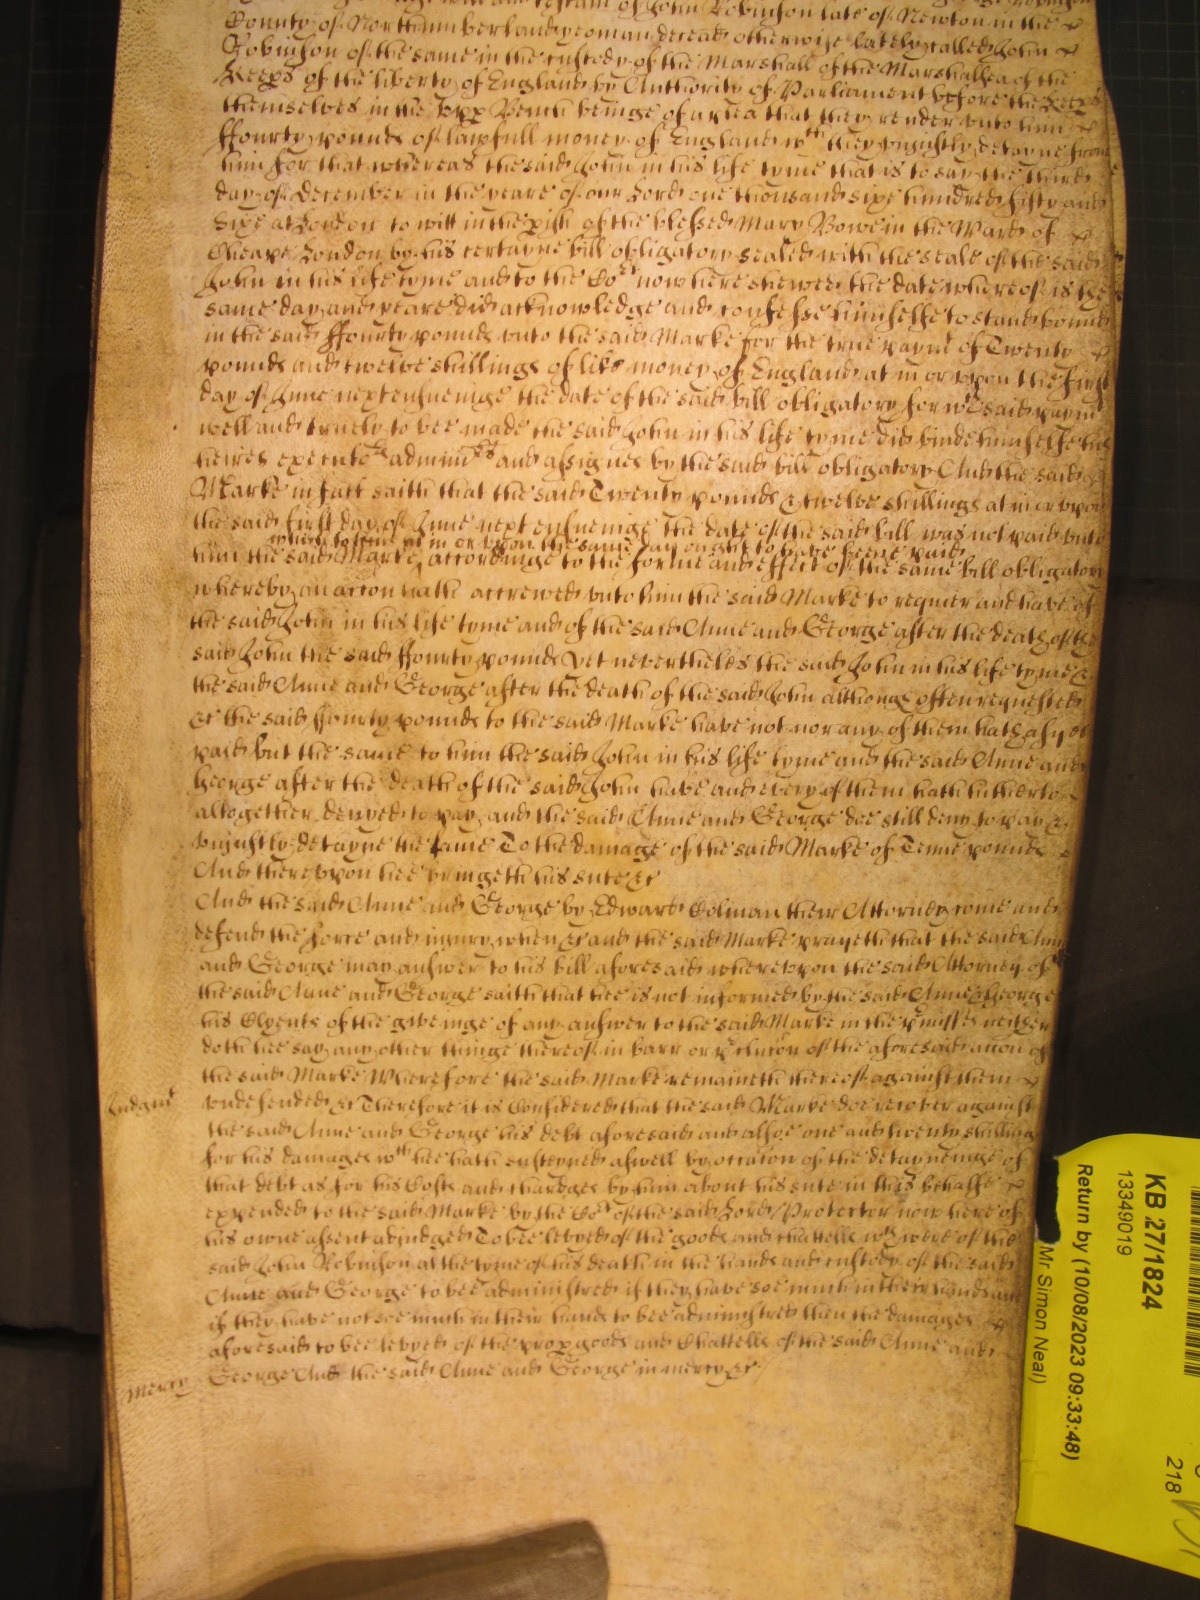 will and testam of John Robinson late of Newton in the
County of Northumberland yeoman deceased otherwise lately called John
Robinson of the same in the custody of the Marshall of the Marshalsea of the
Keeps of the liberty of England by Authority of Parliament before the Keeps
themselves in the Upp Bench beinge of a plea that they render unto him
ffourty pounds of lawfull money of England wch they unjustly detayne from
him for that whereas the said John in his life tyme that is to say the third
day of December in the yeare of our Lord one thousand sixe hundred fifty and
Sixe at London to witt in the pish of the blessed Mary Bowe in the Ward of
Cheape London by his certayne bill obligatory sealed with the seale of the said
John in his life tyme and to the Cot now here shewed the date whereof is the
same day and yeare did acknowledge and confesse himselfe to stand bound
in the said ffourty pounds unto the said Marke for the true paymt of Twenty
pounds and twelve shillings of like money of England at in or upon the first
day of June next ensueinge the date of the said bill obligatory for wch said paymt
well and truely to bee made the said John in his life tyme did binde himselfe his
heires executors administ and assignes by the said bill obligatory And the said
Marke in fact saith that the said Twenty pounds & twelve shillings at in or upon
the said first day of June next ensueinge the date of the said bill was not paid unto
at in or upon the same day ought to have beene paid
him the said Marke accordinge to the forme and effect of the same bill obligatory
whereby an accon hath accrewed unto him the said Marke to requier and have of
the said John in his life tyme and of the said Anne and George after the death of the
said John the said ffourty pounds yet neverthelesse the said John in his life tyme &
the said Anne and George after the death of the said John although often requested
&c the said ffourty pounds to the said Marke have not nor any of them hath as yet
paid but the same to him the said John in his life tyme and the said Anne and
George after the death of the said John have and every of them hath hitherto
altogether denyed to pay and the said Anne and George doe still deny to pay &
unjustly detayne the same To the damage of the said Marke of Tenne pounds
And thereupon hee bringeth his sute &c
And the said Anne and George by Edward Colman their Attorney come and
defend the force and injury when &c and the said Marke prayeth that the said Anne
and George may answer to his bill aforesaid whereupon the said Attorney of
the said Anne and George saith that hee is not informed by the said Anne & George
his Clyents of the giveinge of any answer to the said Marke in the pmisses neither
doth hee say any other thinge thereof in barr or pclucon of the aforesaid accon of
the said Marke Wherefore the said Marke remaineth thereof against them
Judgmt undefended &c Therefore it is Considered that the said Marke doe recover against
the said Anne and George his debt aforesaid and alsoe one and twenty shillings
for his damages wch hee hath susteyned aswell by occasion of the detayneinge of
that debt as for his Costs and chardges by him about his sute in this behalfe
expended to the said Marke by the Cot of the said Lord Protector now here of
his owne assent adjudged To bee levyed of the goods and chattells wch were of the
said John Robinson at the tyme of his death in the hands and custody of the said
Anne and George to bee administred if they have soe much in their hands and
if they have not soe much in their hands to bee administred then the damages
aforesaid to bee levyed of the propp goods and Chattells of the said Anne and
mercy George And the said Anne and George in mercy &c
KB 27/1824
13349019
Return by (10/08/2023 09:33:48)
Mr Simon Neal)
218